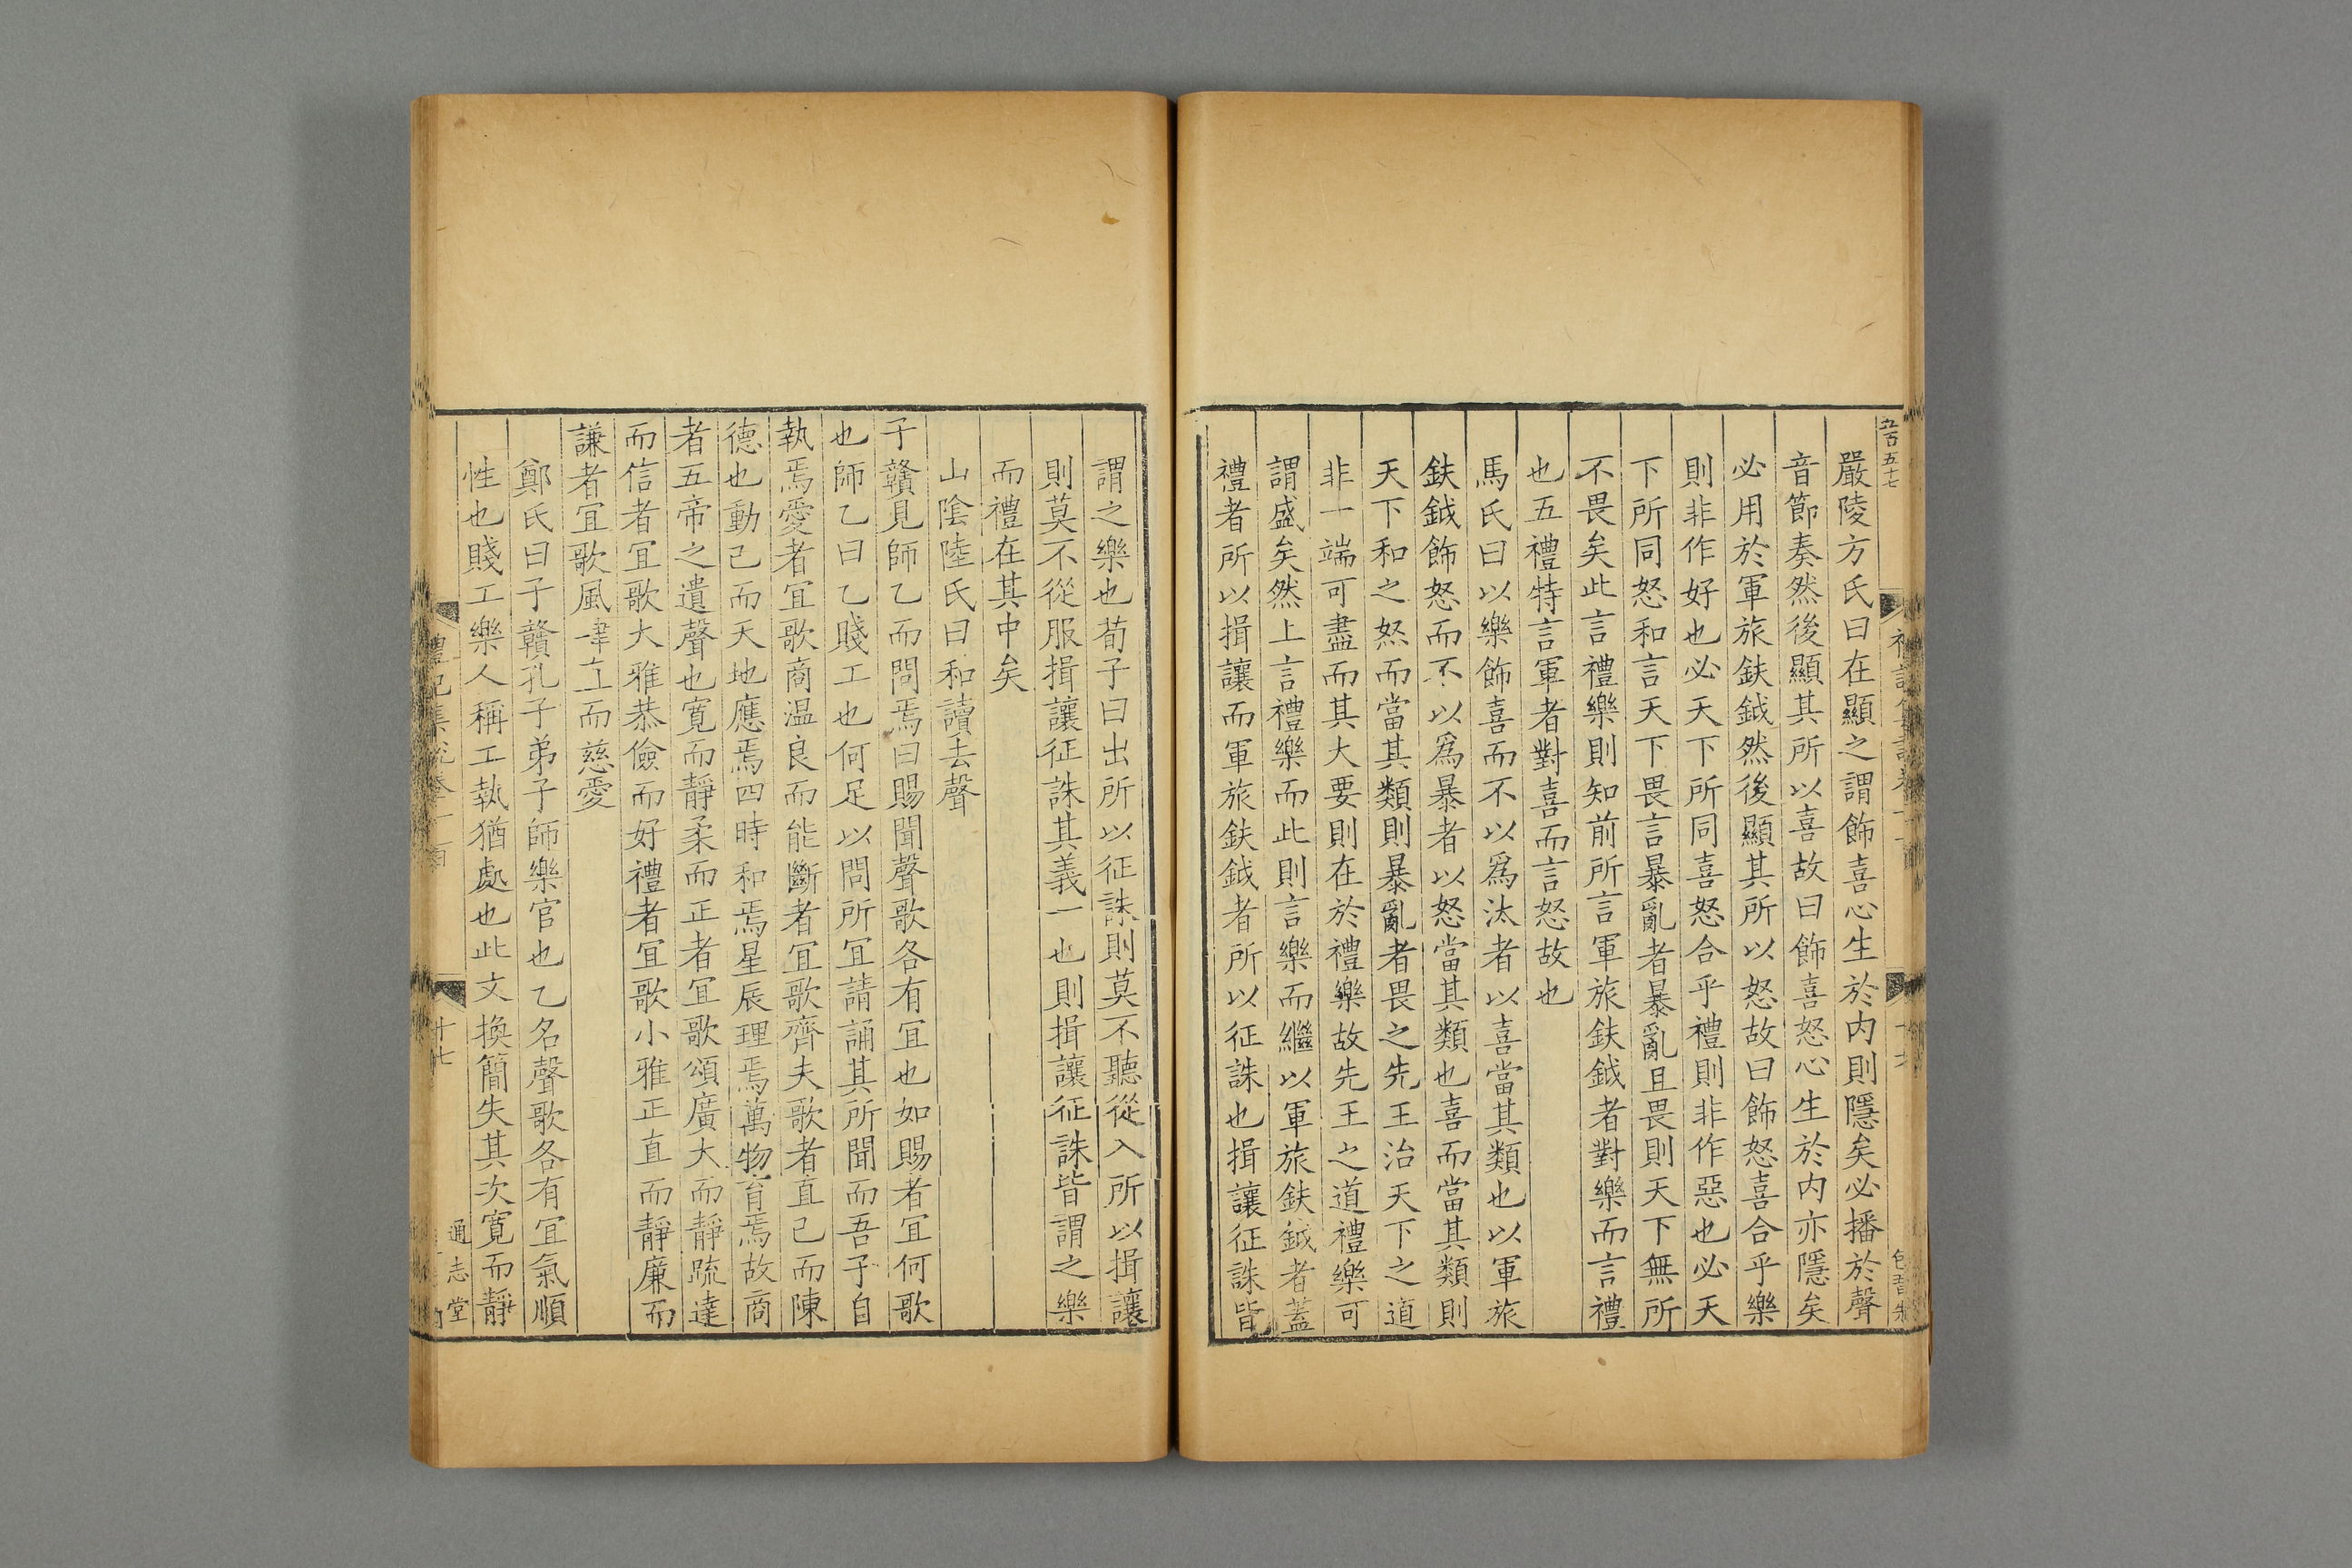 五百五十七
嚴陵方氏曰在顯之謂飾喜心生於内則隱矣必播於聲
音節奏然後顯其所以喜故曰飾喜怒心生於内亦隱矣
必用於軍旅鈇鉞然後顯其所以怒故曰飾怒喜合乎樂
則非作好也必天下所同喜怒合乎禮則非作惡也必天
下所同怒和言天下畏言暴亂者暴亂且畏則天下無所
不畏矣此言禮樂則知前所言軍旅鈇鉞者對樂而言禮
也五禮特言軍者對喜而言怒故也
馬氏曰以樂飾喜而不以爲汰者以喜當其類也以軍旅
鈇鉞飾怒而不以爲暴者以怒當其類也喜而當其類則
天下和之怒而當其類則暴亂者畏之先王治天下之道
非一端可盡而其大要則在於禮樂故先王之道禮樂可
謂盛矣然上言禮樂而此則言樂而繼以軍旅鈇鉞者蓋
禮者所以揖讓而軍旅鈇鉞者所以征誅也揖讓征誅皆
謂之樂也荀子曰出所以征誅則莫不聽從入所以揖讓
則莫不從服揖讓征誅其義一也則揖讓征誅皆謂之樂
而禮在其中矣
山陰陸氏曰和讀去聲
子贛見師乙而問焉曰賜聞聲歌各有宜也如賜者宜何歌
也師乙曰乙賤工也何足以問所宜請誦其所聞而吾子自
執焉愛者宜歌商温良而能斷者宜歌齊夫歌者直己而陳
德也動己而天地應焉四時和焉星辰理焉萬物育焉故商
者五帝之遺聲也寛而靜柔而正者宜歌頌廣大而靜疏達
而信者宜歌大雅恭儉而好禮者宜歌小雅正直而靜廉而
謙者宜歌風肆直而慈愛
鄭氏曰子贛孔子弟子師樂官也乙名聲歌各有宜氣順
性也賤工樂人稱工執猶處也此文換簡失其次寛而靜
禮記集說卷一百
廿七
通志堂